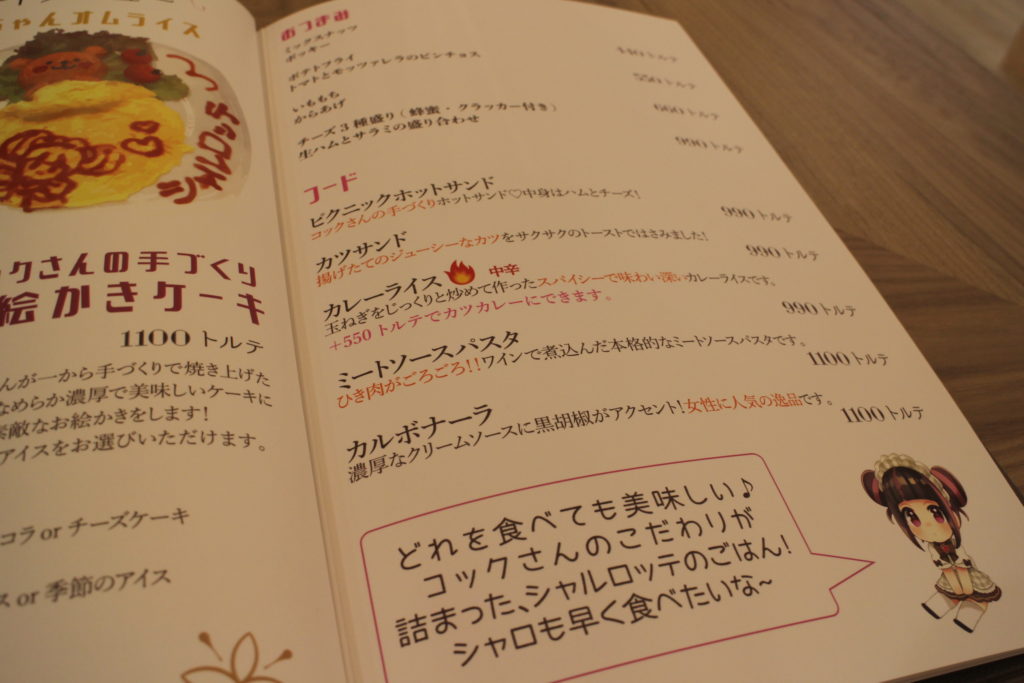 ちゃんオムライス
シャルロッテ
ックさんの手づくり
絵かきケーキ
1100 トルテ
んが一から手づくりで焼き上げた
なめらか濃厚で美味しいケーキに
素敵なお絵かきをします!
アイスをお選びいただけます。
コラ or チーズケーキ
ス or 季節のアイス
おつまみ
ミックスナッツ
ポッキー
440 トルテ
ポテトフライ
トマトとモッツァレラのピンチョス
550 トルテ
いももち
からあげ
660 トルテ
チーズ3種盛り(蜂蜜・クラッカー付き)
生ハムとサラミの盛り合わせ
990 トルテ
フード
ピクニックホットサンド
990 トルテ
コックさんの手づくりホットサンド♡中身はハムとチーズ!
カツサンド
990 トルテ
揚げたてのジューシーなカツをサクサクのトーストではさみました!
カレーライス 中辛
990 トルテ
玉ねぎをじっくりと炒めて作ったスパイシーで味わい深いカレーライスです。
+550 トルテでカツカレーにできます。
ミートソースパスタ
1100 トルテ
ひき肉がごろごろ!!ワインで煮込んだ本格的なミートソースパスタです。
カルボナーラ
1100 トルテ
濃厚なクリームソースに黒胡椒がアクセント!女性に人気の逸品です。
どれを食べても美味しい♪
コックさんのこだわりが
詰まった、シャルロッテのごはん!
シャロも早く食べたいな~